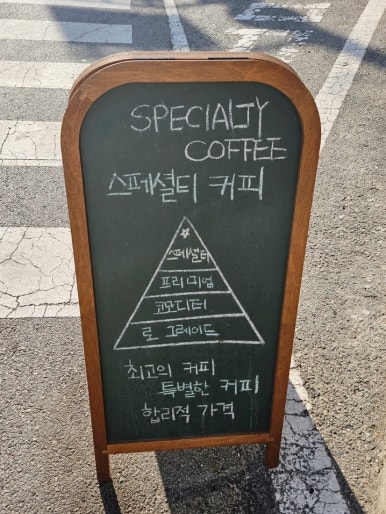 SPECIALTY
COFFEE
스페셜티 커피
스페셜티
프리미엄
코모디티
로 그레이드
최고의 커피
특별한 커피
합리적 가격